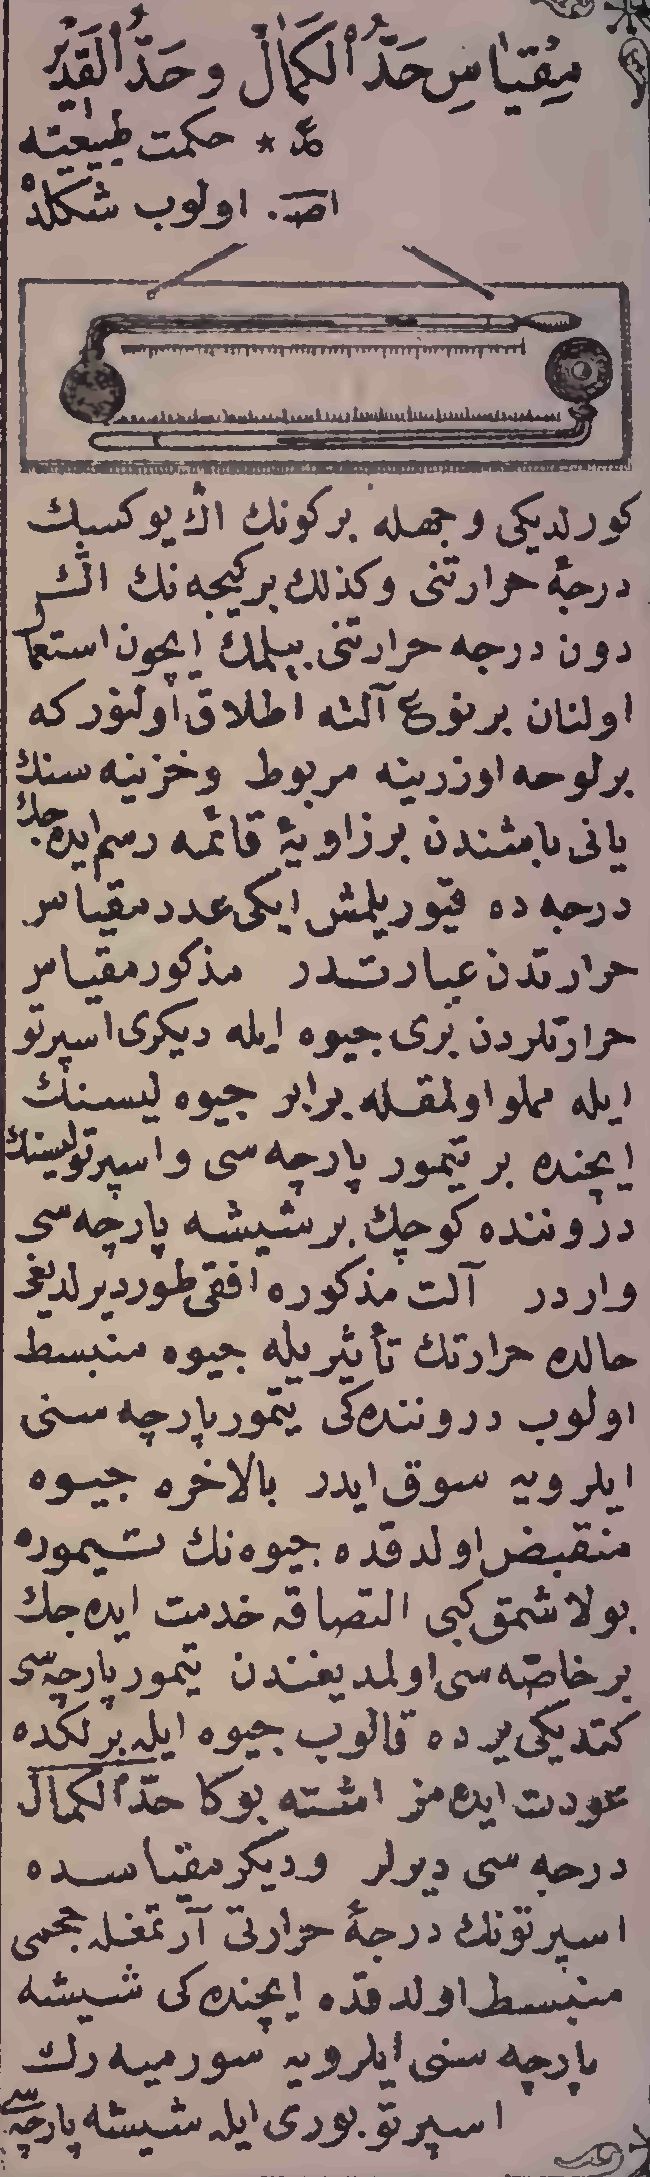 مِقْيَاسِ حَدُّ ٱلْكَمَالْ وحَدُّ ٱلْقَدِيْر
عر ★ حكمت طبيعيه
اص. اولوب شكلده
كورلديكى وجهله بركونك اڭ يوكسك
درجۀ حرارتنى وكذلك بركيجه نك اڭ
دون درجه حرارتنى بيلمك ايچون استعمال
اولنان برنوع آلته اطلاق اولنور كه
برلوحه اوزرينه مربوط وخزينه سنك
يانى باشندن برزاويۀ قائمه رسم ايده جك
درجه ده قيوريلمش ايكى عدد مقياس
حرارتدن عبارتدر مذكور مقياس
حرارتلردن برى جيوه ايله ديكرى اسپرتو
ايله مملو اولمقله برابر جيوه ليسنك
ايچنده بر تيمور پارچه سى و اسپرتوليسنك
دروننده كوچك برشيشه پارچه سى
واردر آلت مذكوره افقى طورديرلديغى
حالده حرارتك تأثيريله جيوه منبسط
اولوب دروننده كى تيمور پارچه سنى
ايلرويه سوق ايدر بالاخره جيوه
منقبض اولدقده جيوه نك تيموره
بولاشمق كبى التصاقه خدمت ايده جك
برخاصه سى اولمديغندن تيمور پارچه سى
كتديكى يرده قالوب جيوه ايله برلكده
عودت ايده مز اشته بوكا حدّ ٱلكمال
درجه سى ديرلر وديكر مقياسده
اسپرتونك درجۀ حرارتى آرتمغله حجمى
منبسط اولدقده ايچنده كى شيشه
پارچه سنى ايلرويه سورميه رك
اسپرتو بورى ايله شيشه پارچه سى